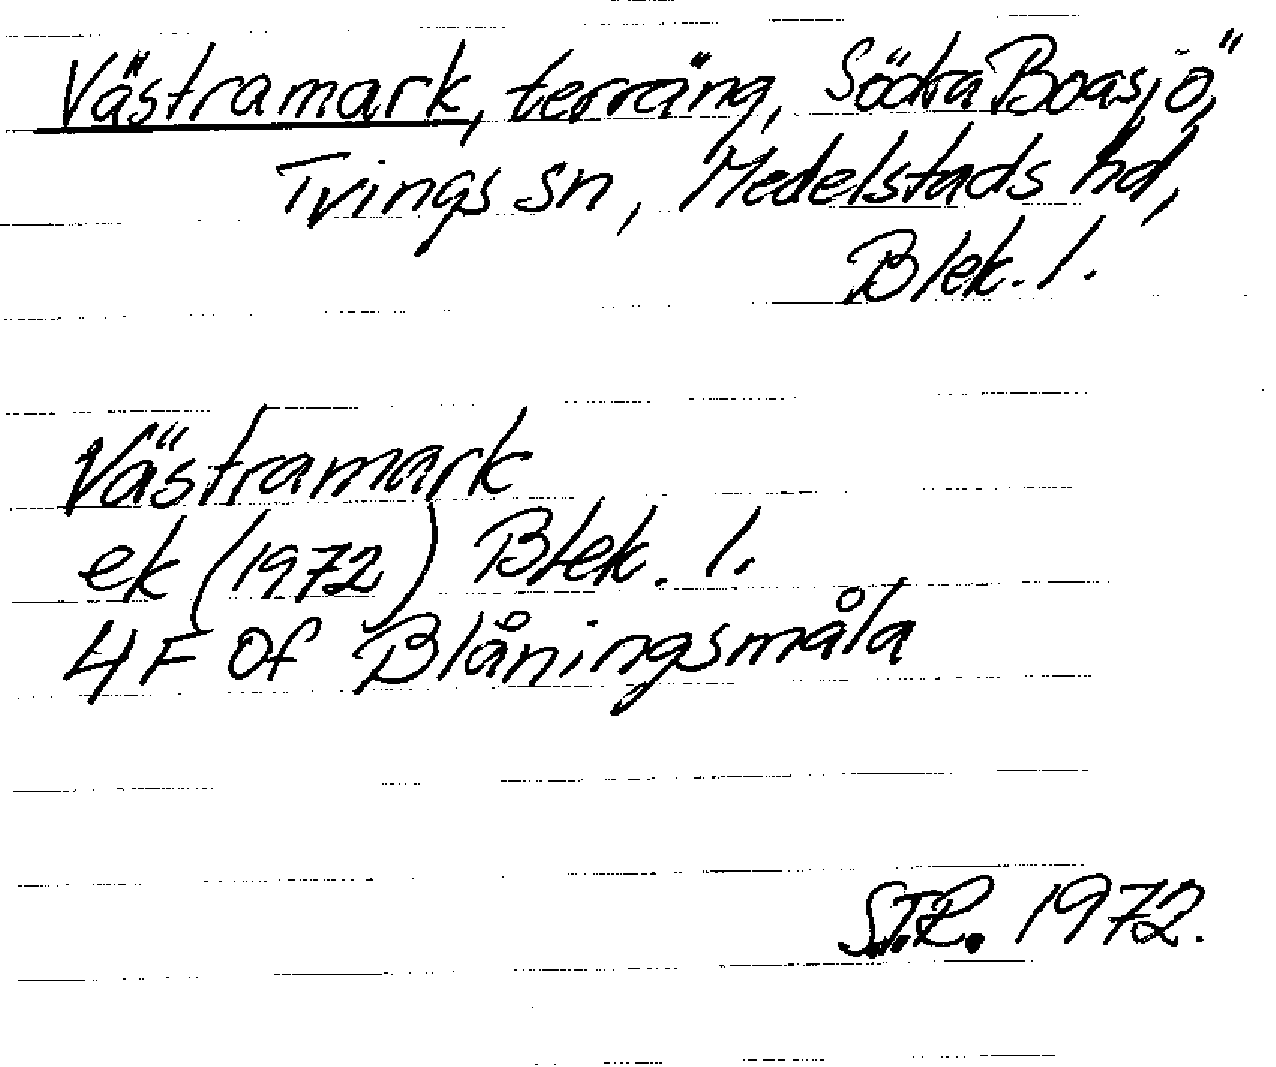 Västramark, terräng, Södra Boasjö,
Tvings sn, Medelstads hd,
Blek. l.
Västramark
ek (1972) Blek. l.
4F 0f Blåningsmåla
S.T.R. 1972.